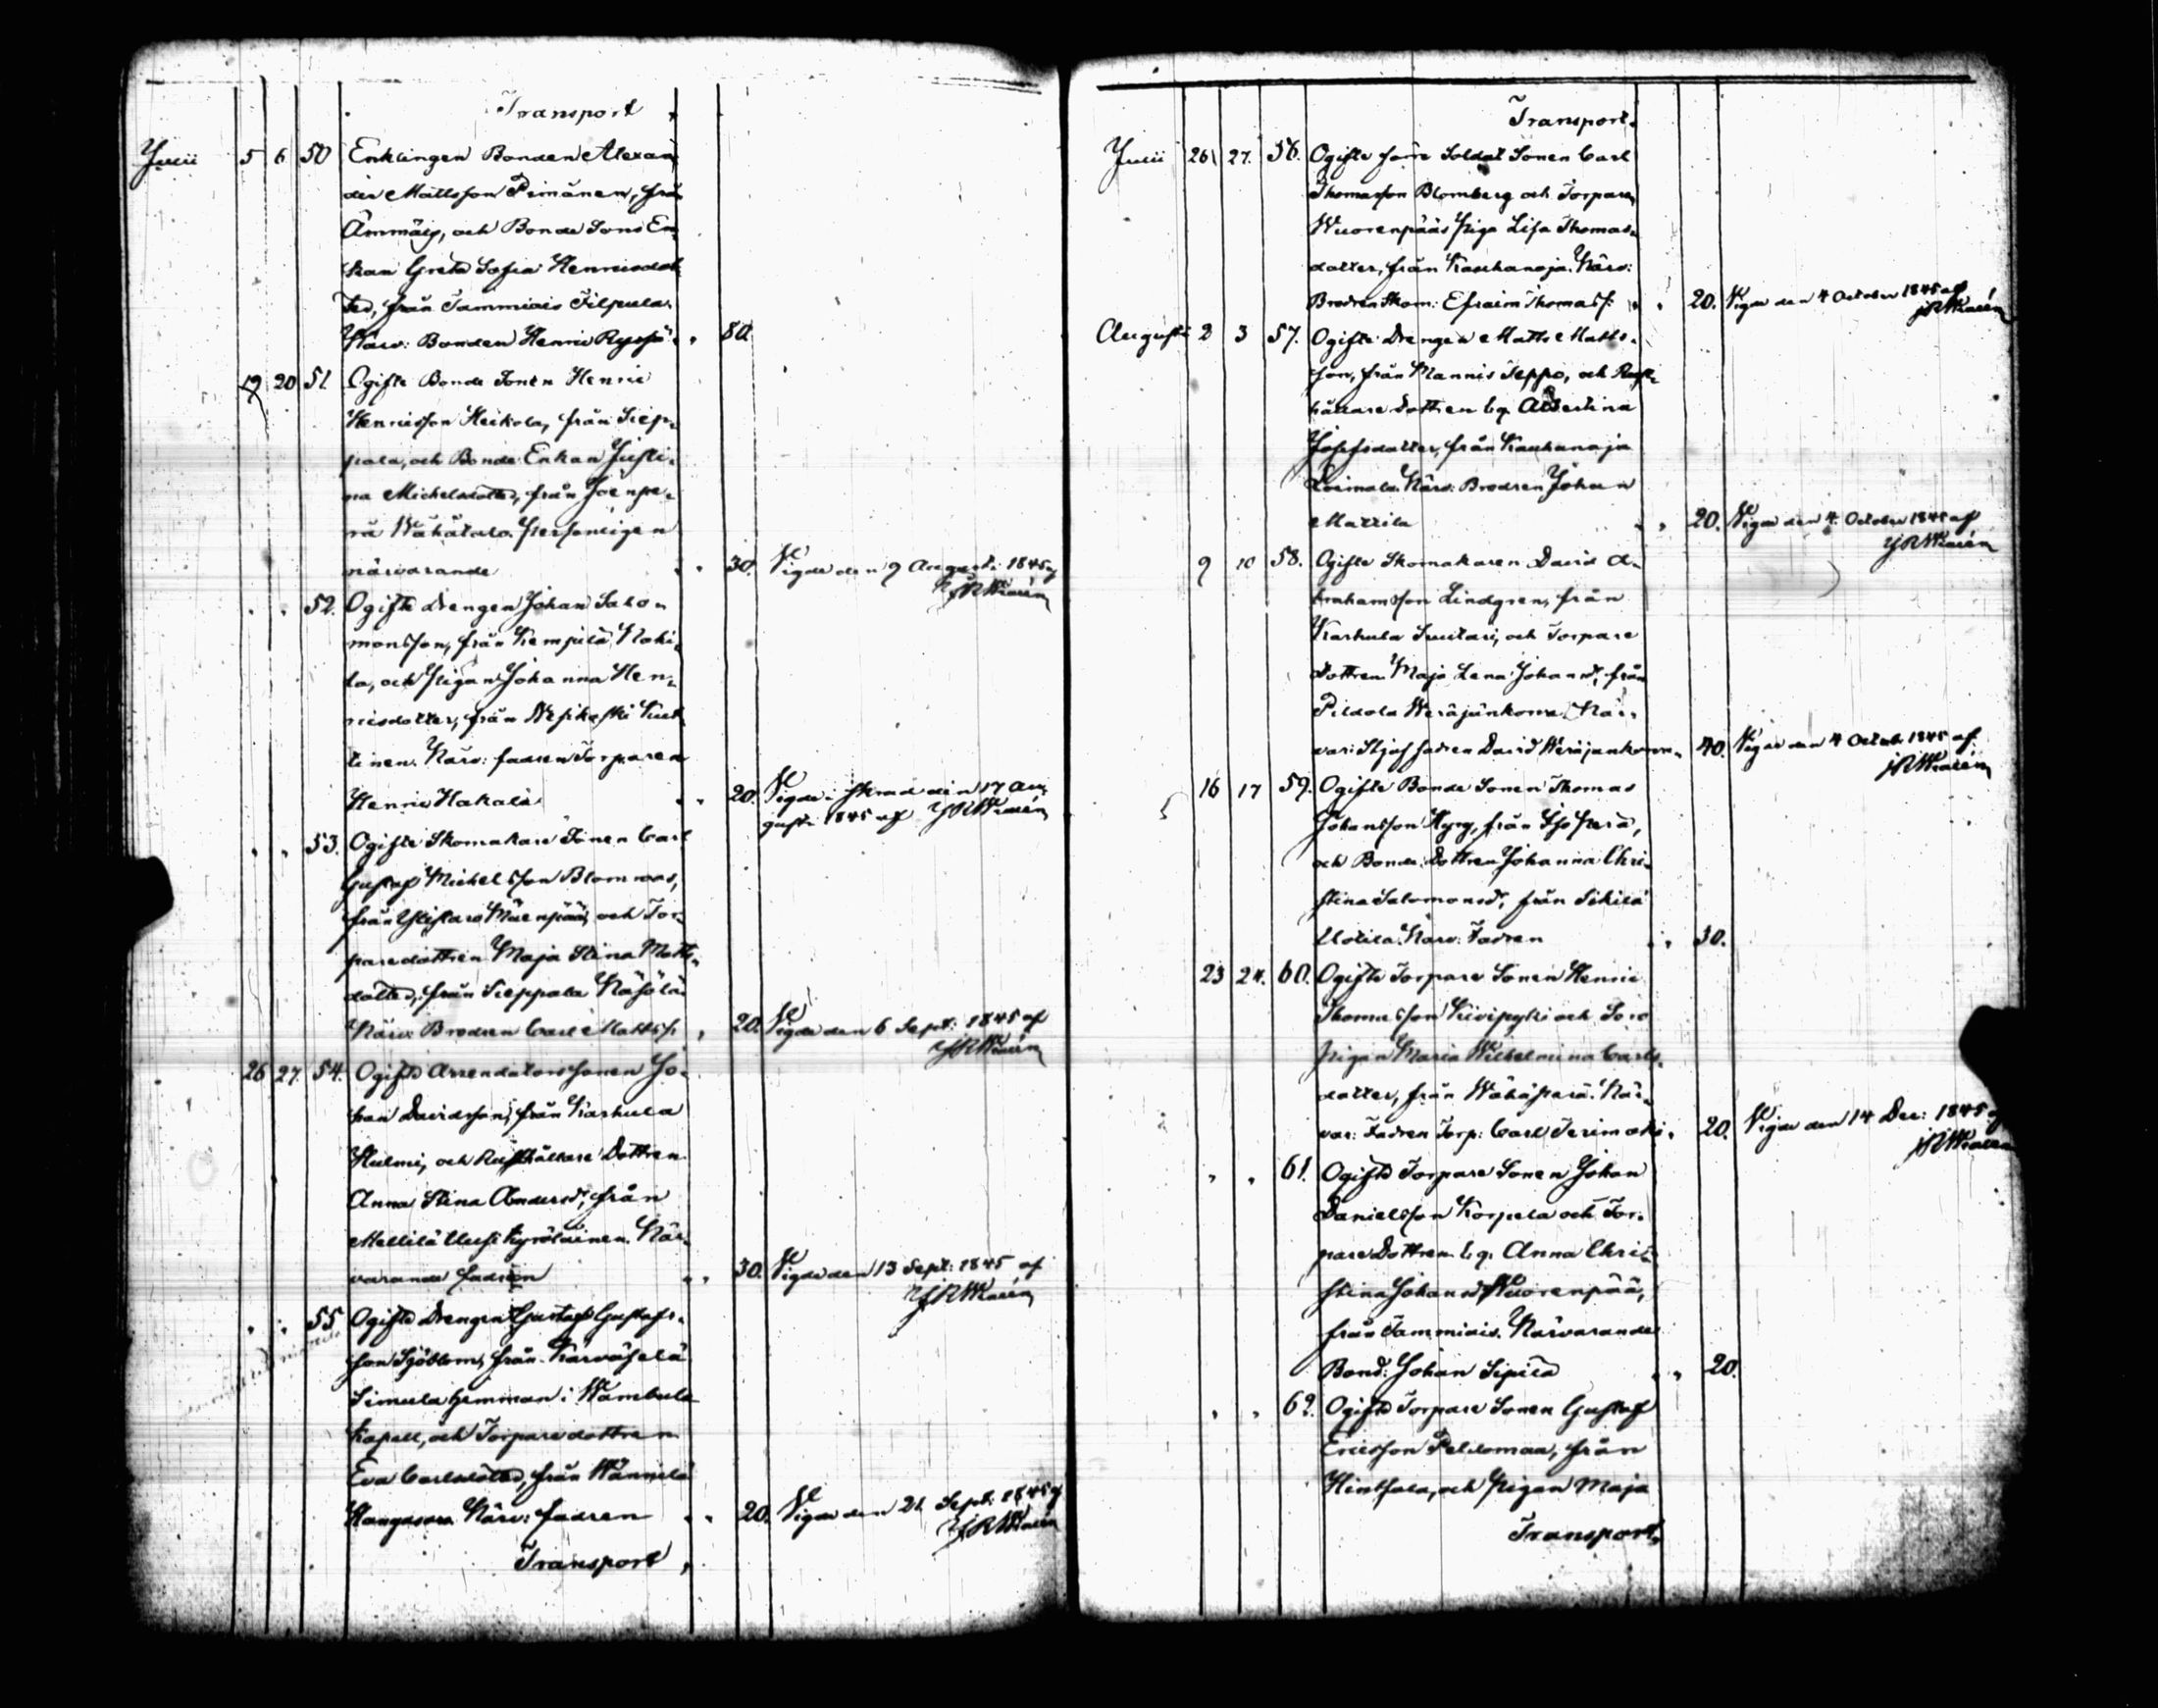 Transport
Julii 5 6 50 Enklingen Bonden Alexan
der Mattsson Pimänen, från
Ammäis, och Bonde Sons En
kan Greta Sofia Henricsdot
ter, från Tammiais Filpula.
Närv: Bonden Henric 80.
19 20 51. Ogifte Bonde Sonen Henric
Henricsson Heikola, från Siep-
pala, och Bonde Enkan Justi-
na Michelsdotter, från Joenpe-
rä Wähätalo. Personligen
närvarande 30. Vigde den 9 Augusti 1845 af
" " 52. Ogifte Drengen Johan Salo-
monsson, från Kempilä Noki-
la, och Pigan Johanna Hen-
ricsdotter, från
tinen. Närv: fadren Torparen
Henric Hakala 20. Vigde i den 17 Au-
gusti 1845 af
" " 53. Ogifte Skomakare Sonen Carl
Gustaf Michelsson Blomroos,
från Ylistaro Mäenpää, och Tor-
paredottren Maja Stina Matts-
dotter, från Sieppala Näsölä
Närv: Brodren Carl Mattss: 20. Vigde den 6 Sept: 1845 af
26 27. 54. Ogifte Arrendators sonen Jo-
han Davidsson, från Karhula
Hulmi, och Rusthållare Dottren
Anna Stina Andersd:, från
Mellilä Uusi Kyröläinen. När-
varande fadren 30. Vigde den 13 Sept: 1845 af
" " 55 Ogifte Drengen Gustaf Gustafs-
son Sjöblom, från Karvasela
Simula hemman i Wambula
Kapell, och Torpare dottren
Eva Carlsdotter, från Wännilä
Närv: fadren 20. Vigde den 21 Sept: 1845 af
Transport
Transport.
Julii 26 27. 56. Ogifte Soldat Sonen Carl
Thomasson Blomberg och Torparen
Wuorenpääs Piga Lisa Thomas-
dotter, från Kauhanoja. Närv:
Brodren Skom: Efraim Thomass: 20. Vigde den 4 October 1845 af
Augusti 2 3 57. Ogifte Drengen Matts Matts-
son, från Mannis Seppo, och Rust-
hållare dottren Albertina
Josefsdotter, från Kauhanoja
Närv: Brodren Johan
Mattila 20. Vigde den 4. October 1845 af
9 10 58. Ogifte Skomakaren David A-
brahamsson Lindgren, från
Karhula Suutari, och Torpare
dottren Maja Lena Johansd:, från
Pildola Weräjänkorva. När-
var: Styffadren David Weräjänkorva 40. Vigde den 4 Octob: 1845 af
16 17 59. Ogifte Bonde Sonen Thomas
Johansson från
och Bonde Dottren Johanna Chri-
stina Salomonsd:, från Sikilä
Uotila. Närv: Fadren 30.
23 24. 60. Ogifte Torpare Sonen Henric
Thomasson Kivipytti och
Pigan Maria Wilhelmina Carls-
dotter, från Wähäperä. När-
var: Fadren Torp: Carl Terimäki. 20. Vigde den 14 Dec: 1845 af
" " 61. Ogifte Torpare Sonen Johan
Danielsson Korpela och Tor-
pare Dottren Anna Chri-
stina Johansd: Wuorenpää,
från Tammiais. Närvarande
Bond: Johan Sipilä 20.
" " 62. Ogifte Torpare Sonen Gustaf
Ericsson Peldomaa, från
Hintsala, och Pigan Maja
Transport.